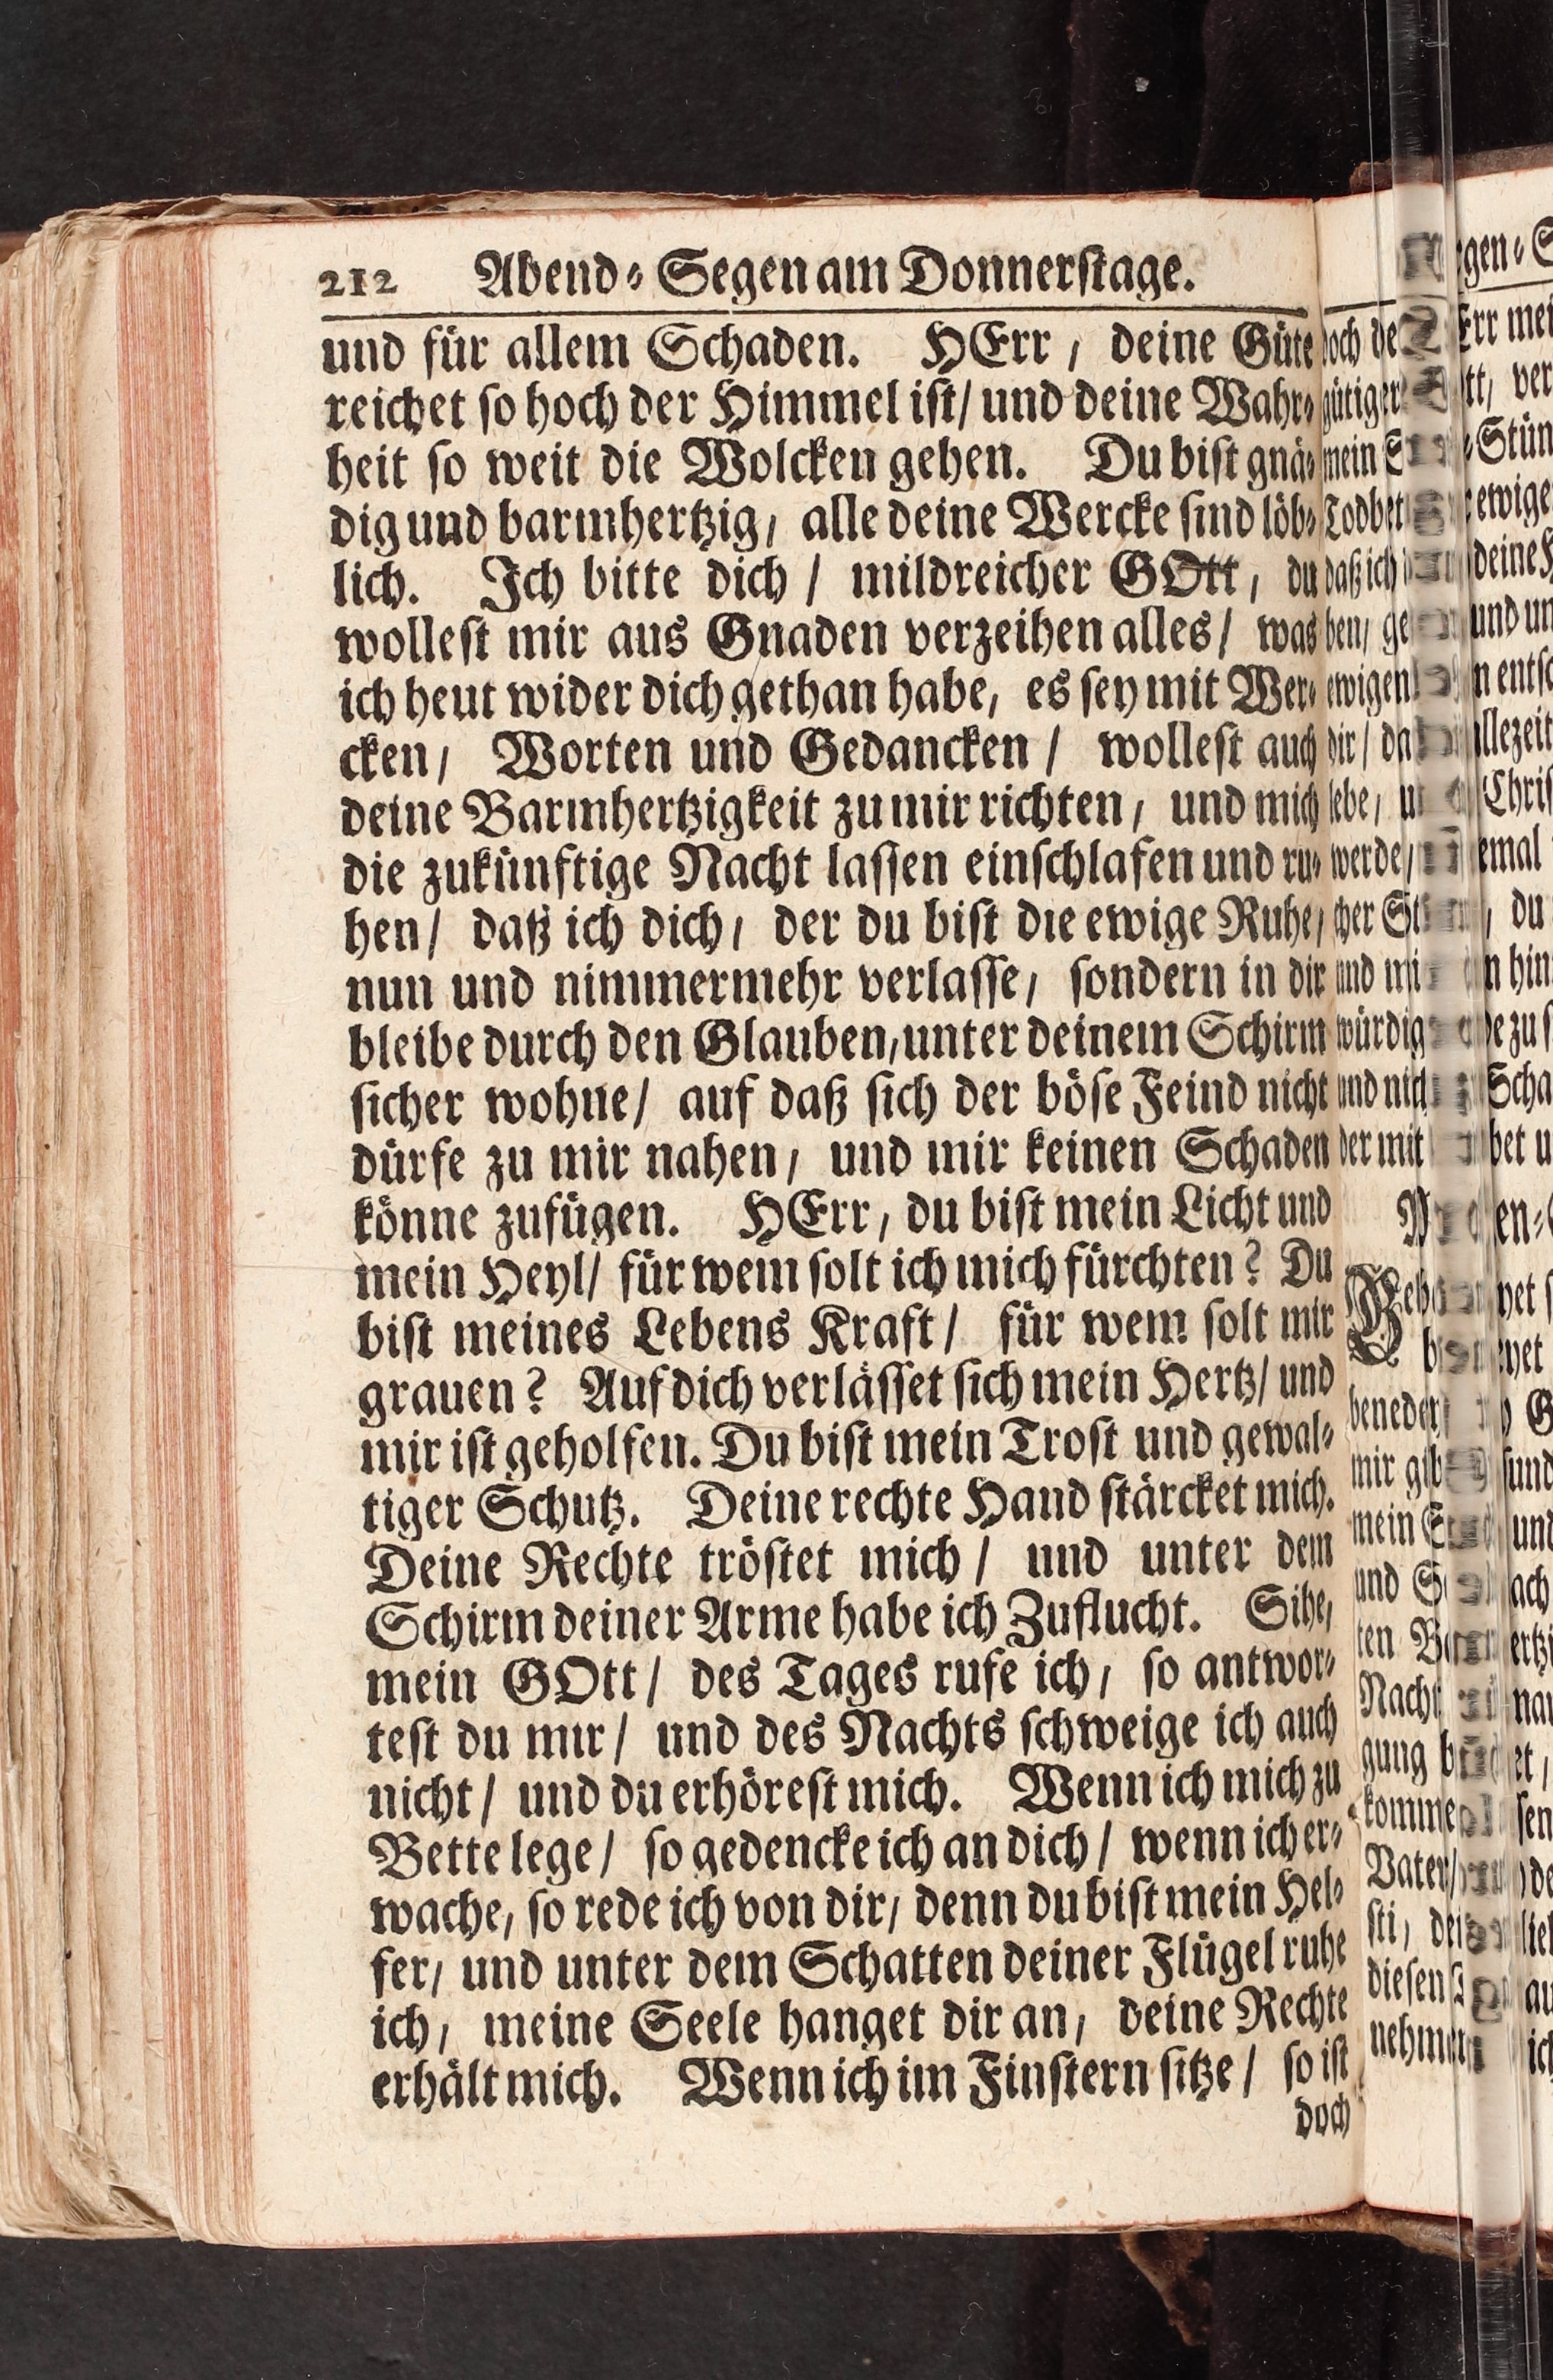 212 Abend-Segen am Donnerstage.
und für allem Schaden. HErr, deine Güte
reichet so hoch der Himmel ist/ und deine Wahr-
heit so weit die Wolcken gehen. Du bist gnä-
dig und barmhertzig, alle deine Wercke sind löb-
lich. Ich bitte dich / mildreicher GOtt, du
wollest mir aus Gnaden verzeihen alles/ was
ich heut wider dich gethan habe, es sey mit Wer-
cken, Worten und Gedancken / wollest auch
deine Barmhertzigkeit zu mir richten, und mich
die zukünftige Nacht lassen einschlafen und ru-
hen/ daß ich dich, der du bist die ewige Ruhe,
nun und nimmermehr verlasse, sondern in dir
bleibe durch den Glauben, unter deinem Schirm
sicher wohne/ auf daß sich der böse Feind nicht
dürfe zu mir nahen, und mir keinen Schaden
könne zufügen. HErr, du bist mein Licht und
mein Heyl/ für wem solt ich mich fürchten? Du
bist meines Lebens Kraft/ für wem solt mir
grauen? Auf dich verlässet sich mein Hertz/ und
mir ist geholfen. Du bist mein Trost und gewal-
tiger Schutz. Deine rechte Hand stärcket mich.
Deine Rechte tröstet mich / und unter dem
Schirm deiner Arme habe ich Zuflucht. Sihe,
mein GOtt/ des Tages rufe ich, so antwor-
test du mir/ und des Nachts schweige ich auch
nicht/ und du erhörest mich. Wenn ich mich zu
Bette lege/ so gedencke ich an dich/ wenn ich er-
wache, so rede ich von dir, denn du bist mein Hel-
fer, und unter dem Schatten deiner Flügel ruhe
ich, meine Seele hanget dir an, deine Rechte
erhält mich. Wenn ich im Finstern sitze/ so ist
doch